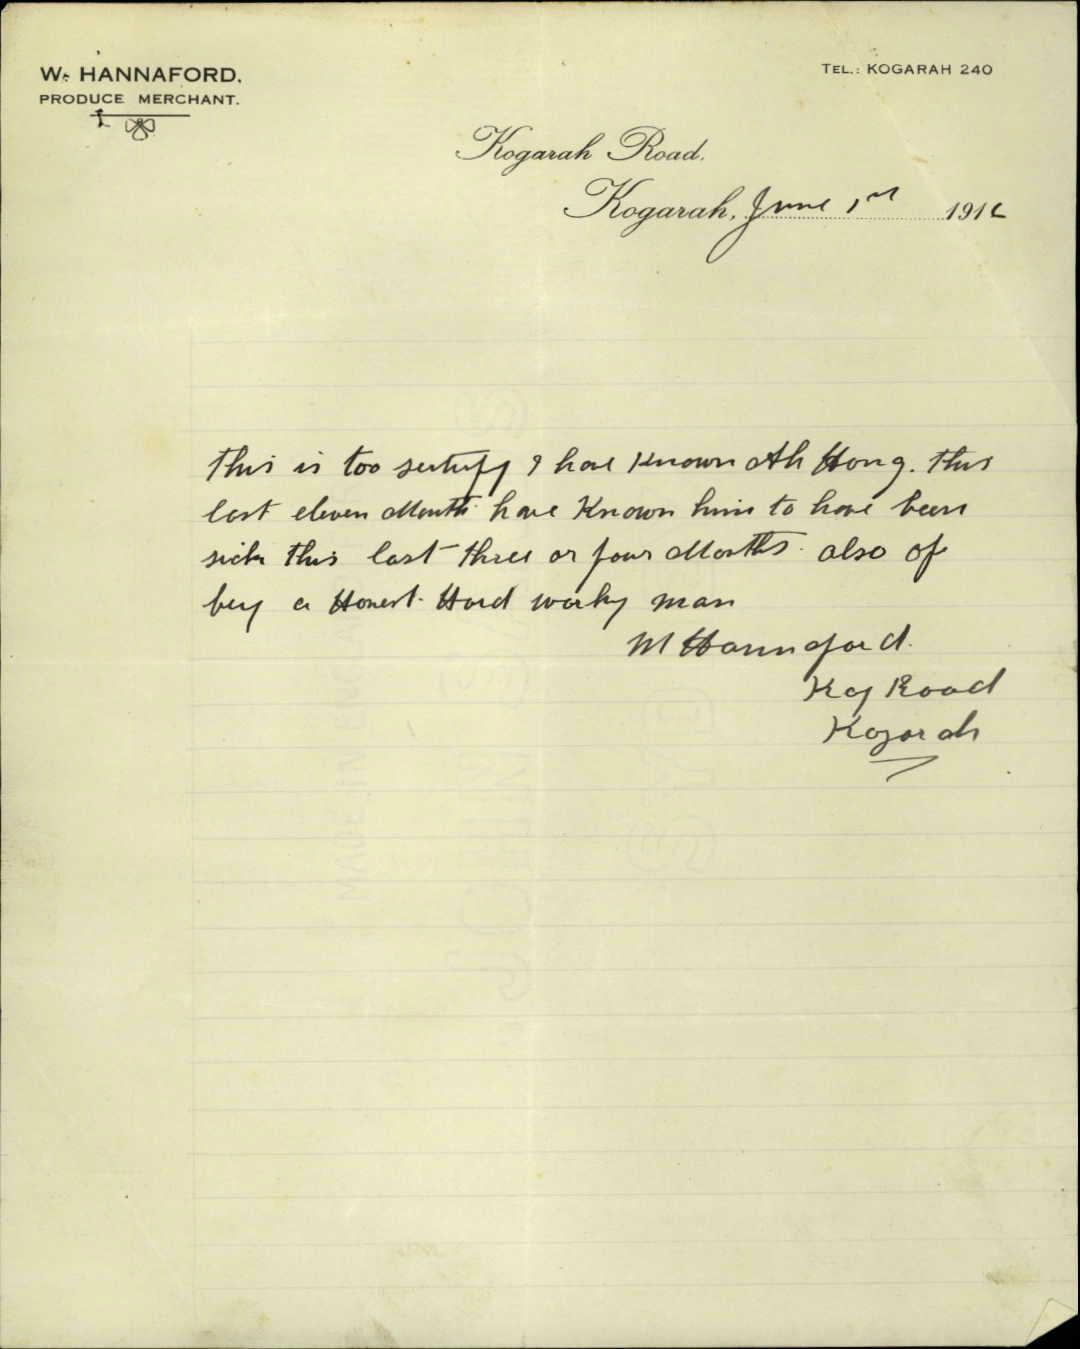 W. HANNAFORD.
PRODUCE MERCHANT.
TEL.: KOGARAH 240
Kogarah Road.
Kogarah, June 1st 1916
This is too sertify I have Known Ah Hong. this
last eleven Months have Known him to have been
sick this last three or four Months. also of
bey a Honest. Hard worky man
W Hannaford.
Kog Road
Kogarah